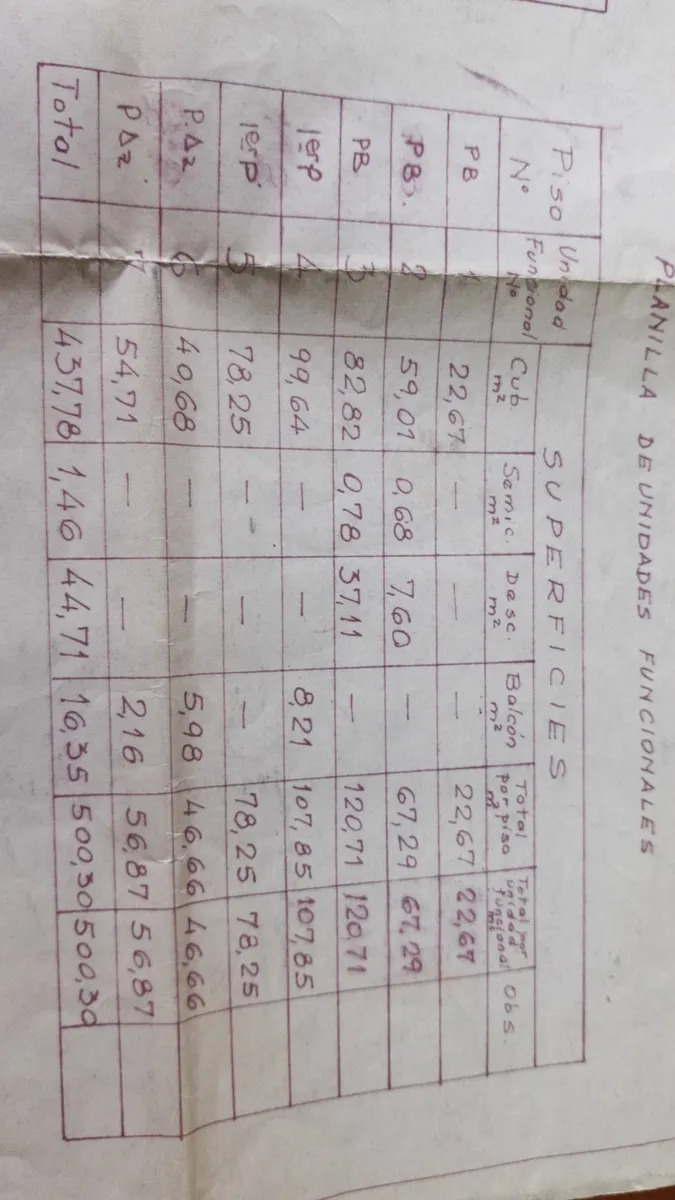 PLANILLA DE UNIDADES FUNCIONALES
Piso Nº Unidad Funcional Nº SUPERFICIES
Cub. m² Semic. m² Desc. m² Balcón m² Total por piso m² Total por unidad funcional m² Obs.
PB 1 22,67 — — — 22,67 22,67
PB. 2 59,01 0,68 7,60 — 67,29 67,29
PB 3 82,82 0,78 37,11 — 120,71 120,71
1erp 4 99,64 — — 8,21 107,85 107,85
1erp 5 78,25 — — — 78,25 78,25
P.A2 6 40,68 — — 5,98 46,66 46,66
PA2 7 54,71 — — 2,16 56,87 56,87
Total 437,78 1,46 44,71 16,35 500,30 500,30